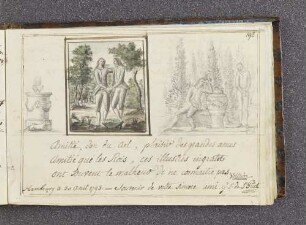 191.
Amitié, don du Ciel, plaisir des grandes ames
Amitié que les Rois, ces illustres ingrats
ont souvent le malheur de ne connaître pas
Voltaire
Hambourg Souvenir de votre sincere ami